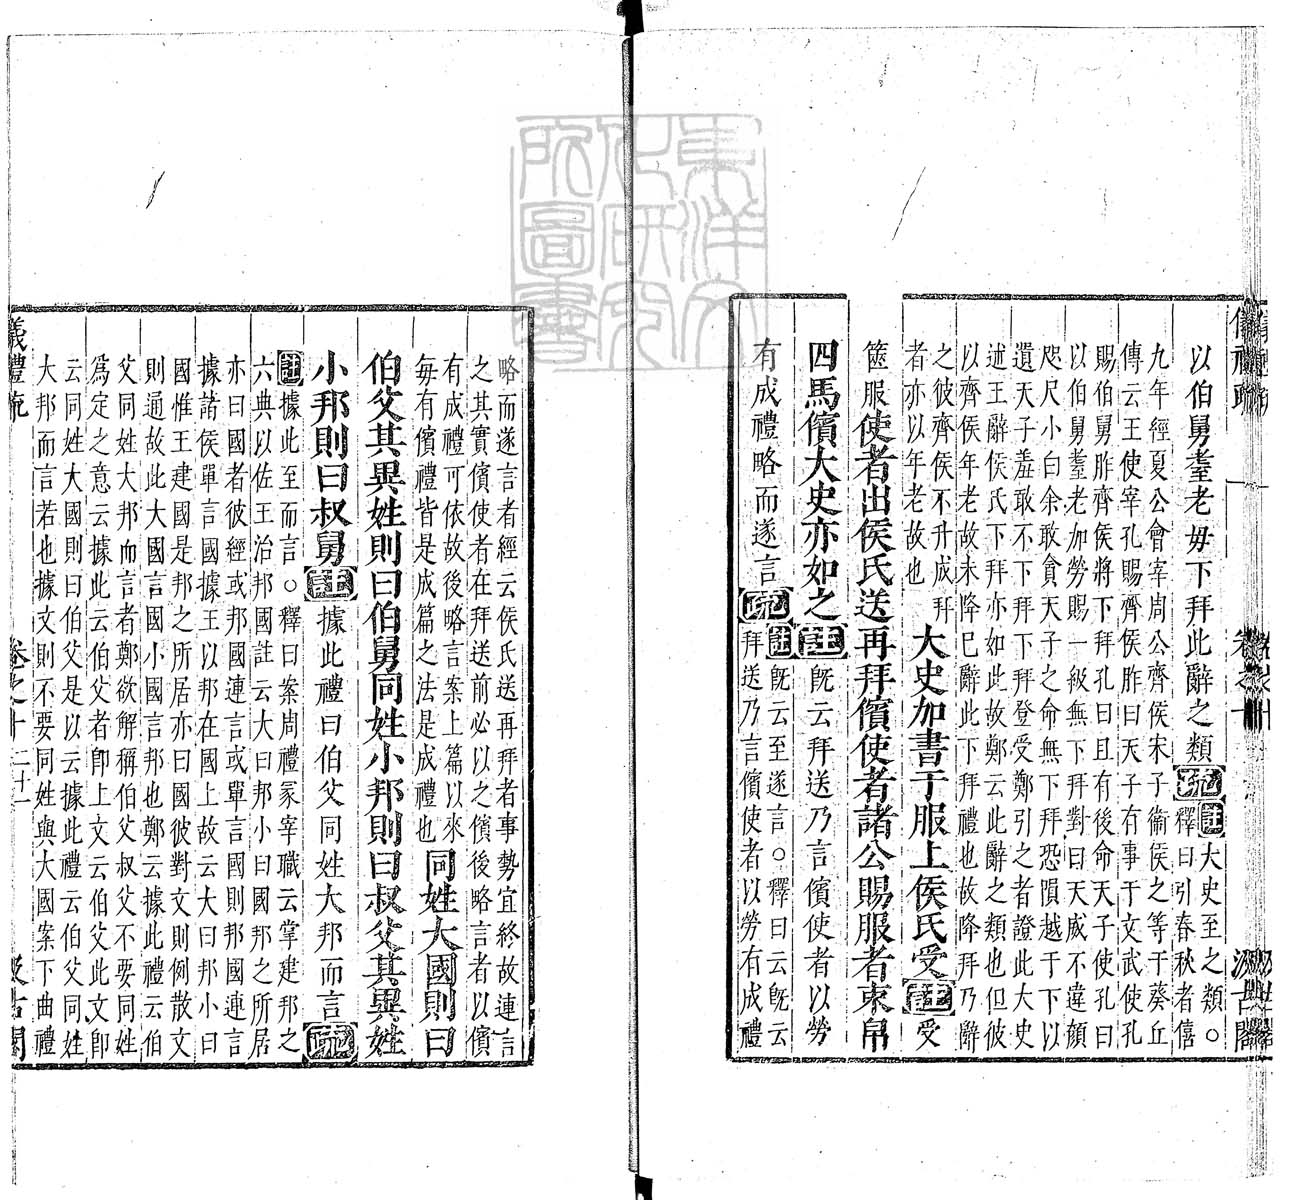 以伯舅耋老毋下拜此辭之類疏註大史至之類○
釋曰引春秋者僖
九年經夏公會宰周公齊侯宋子衞侯之等于葵丘
傳云王使宰孔賜齊侯胙曰天子有事于文武使孔
賜伯舅胙齊侯將下拜孔曰且有後命天子使孔曰
以伯舅耋老加勞賜一級無下拜對曰天威不違顏
咫尺小白余敢貪天子之命無下拜恐隕越于下以
遺天子羞敢不下拜下拜登受鄭引之者證此大史
述王辭侯氏下拜亦如此故鄭云此辭之類也但彼
以齊侯年老故未降巳辭此下拜禮也故降拜乃辭
之彼齊侯不升成拜
者亦以年老故也
大史加書于服上侯氏受註受
篋服使者出侯氏送再拜儐使者諸公賜服者束帛
四馬儐大史亦如之註既云拜送乃言儐使者以勞
有成禮略而遂言疏註既云至遂言○釋曰云既云
拜送乃言儐使者以勞有成禮
略而遂言者經云侯氏送再拜者事勢宜終故連言
之其實儐使者在拜送前必以之儐後略言者以儐
有成禮可依故後略言案上篇以來
毎有儐禮皆是成篇之法是成禮也
同姓大國則曰
伯父其異姓則曰伯舅同姓小邦則曰叔父其異姓
小邦則曰叔舅註據此禮曰伯父同姓大邦而言疏
註據此至而言○釋曰案周禮冢宰職云掌建邦之
六典以佐王治邦國註云大曰邦小曰國邦之所居
亦曰國者彼經或邦國連言或單言國則邦國連言
據諸侯單言國據王以邦在國上故云大曰邦小曰
國惟王建國是邦之所居亦曰國彼對文則例散文
則通故此大國言國小國言邦也鄭云據此禮云伯
父同姓大邦而言者鄭欲解稱伯父叔父不要同姓
為定之意云據此云伯父者卽上文云伯父此文卽
云同姓大國則曰伯父是以云據此禮云伯父同姓
大邦而言若也據文則不要同姓與大國案下曲禮
儀禮疏
卷之十
二十一
汲古閣
東洋文化研究所圖書